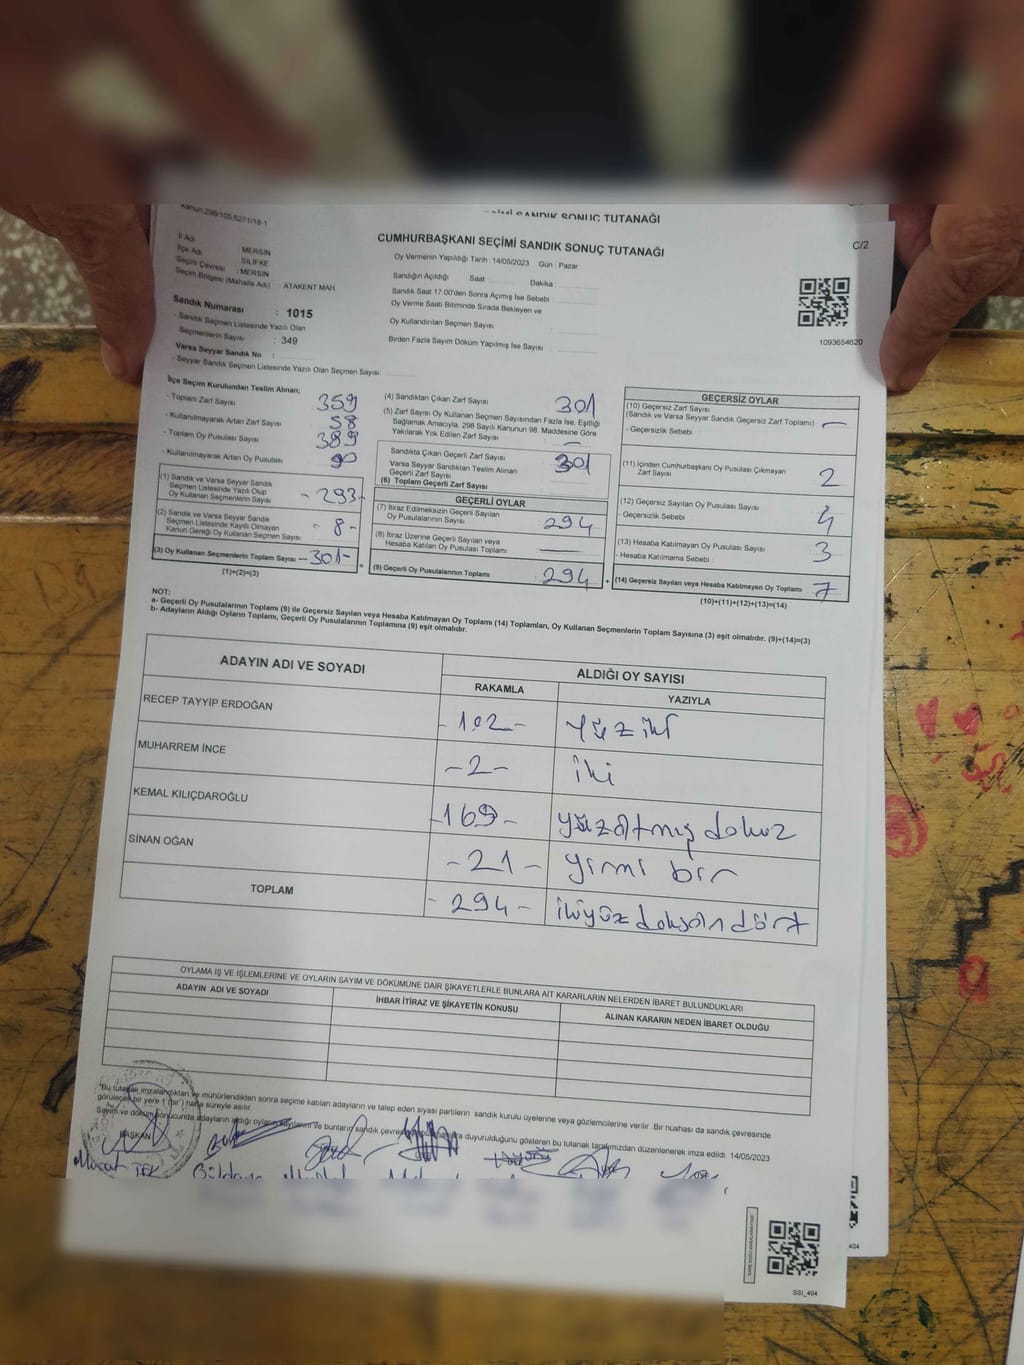 SANDIK SONUÇ TUTANAĞI
Kanun:298/105,6271/18-1
CUMHURBAŞKANI SEÇİMİ SANDIK SONUÇ TUTANAĞI
C/2
İl Adı : MERSİN
İlçe Adı : SİLİFKE
Seçim Çevresi : MERSİN
Seçim Bölgesi (Mahalle Adı) ATAKENT MAH.
Sandık Numarası : 1015
- Sandık Seçmen Listesinde Yazılı Olan
Seçmenlerin Sayısı : 349
Varsa Seyyar Sandık No :
- Seyyar Sandık Seçmen Listesinde Yazılı Olan Seçmen Sayısı
Oy Vermenin Yapıldığı Tarih :14/05/2023 Gün :Pazar
Sandığın Açıldığı Saat Dakika
Sandık Saat 17:00'den Sonra Açımış İse Sebebi :
Oy Verme Saati Bitiminde Sırada Bekleyen ve
Oy Kullandırılan Seçmen Sayısı :
Birden Fazla Sayım Döküm Yapılmış İse Sayısı :
1093654620
İlçe Seçim Kurulundan Teslim Alınan;
- Toplam Zarf Sayısı 359
- Kullanılmayarak Artan Zarf Sayısı 58
- Toplam Oy Pusulası Sayısı 389
- Kullanılmayarak Artan Oy Pusulası 90
(1) Sandık ve Varsa Seyyar Sandık
Seçmen Listesinde Yazılı Olup
Oy Kullanan Seçmenlerin Sayısı - 293 -
(2) Sandık ve Varsa Seyyar Sandık
Seçmen Listesinde Kayıtlı Olmayan
Kanun Gereği Oy Kullanan Seçmen Sayısı - 8 -
(3) Oy Kullanan Seçmenlerin Toplam Sayısı - 301 -
(1)+(2)=(3)
(4) Sandıktan Çıkan Zarf Sayısı 301
(5) Zarf Sayısı Oy Kullanan Seçmen Sayısından Fazla İse, Eşitliği
Sağlamak Amacıyla, 298 Sayılı Kanunun 98. Maddesine Göre
Yakılarak Yok Edilen Zarf Sayısı —
Sandıkta Çıkan Geçerli Zarf Sayısı 301
Varsa Seyyar Sandıktan Teslim Alınan
Geçerli Zarf Sayısı
(6) Toplam Geçerli Zarf Sayısı
GEÇERLİ OYLAR
(7) İtiraz Edilmeksizin Geçerli Sayılan
Oy Pusulalarının Sayısı 294
(8) İtiraz Üzerine Geçerli Sayılan veya
Hesaba Katılan Oy Pusulası Toplamı —
(9) Geçerli Oy Pusulalarının Toplamı 294
GEÇERSİZ OYLAR
(10) Geçersiz Zarf Sayısı
(Sandık ve Varsa Seyyar Sandık Geçersiz Zarf Toplamı) —
- Geçersizlik Sebebi
(11) İçinden Cumhurbaşkanı Oy Pusulası Çıkmayan
Zarf Sayısı 2
(12) Geçersiz Sayılan Oy Pusulası Sayısı
- Geçersizlik Sebebi
(13) Hesaba Katılmayan Oy Pusulası Sayısı 3
- Hesaba Katılmama Sebebi
(14) Geçersiz Sayılan veya Hesaba Katılmayan Oy Toplamı 7
(10)+(11)+(12)+(13)=(14)
NOT:
a- Geçerli Oy Pusulalarının Toplamı (9) ile Geçersiz Sayılan veya Hesaba Katılmayan Oy Toplamı (14) Toplamları, Oy Kullanan Seçmenlerin Toplam Sayısına (3) eşit olmalıdır. (9)+(14)=(3)
b- Adayların Aldığı Oyların Toplamı, Geçerli Oy Pusulalarının Toplamına (9) eşit olmalıdır.
ADAYIN ADI VE SOYADI
ALDIĞI OY SAYISI
RAKAMLA YAZIYLA
RECEP TAYYİP ERDOĞAN - 102 - yüz iki
MUHARREM İNCE - 2 - iki
KEMAL KILIÇDAROĞLU - 169 - yüzatmış dokuz
SİNAN OĞAN - 21 - yirmi bir
TOPLAM - 294 - ikiyüz doksan dört
OYLAMA İŞ VE İŞLEMLERİNE VE OYLARIN SAYIM VE DÖKÜMÜNE DAİR ŞİKAYETLERLE BUNLARA AİT KARARLARIN NELERDEN İBARET BULUNDUKLARI
ADAYIN ADI VE SOYADI İHBAR İTİRAZ VE ŞİKAYETİN KONUSU ALINAN KARARIN NEDEN İBARET OLDUĞU
"Bu tutanak imzalandıktan ve mühürlendikten sonra seçime katılan adayların ve talep eden siyasi partilerin sandık kurulu üyelerine veya gözlemcilerine verilir. Bir nüshası da sandık çevresinde
görülecek bir yere 1 (bir) hafta süreyle asılır.
Sayım ve döküm sonucunda adayların aldığı oyların sayılarını ve bunların sandık çevresinde duyurulduğunu gösteren bu tutanak tarafımızdan düzenlenerek imza edildi. 14/05/2023
BAŞKAN
Murat TEK
SSI_404
404